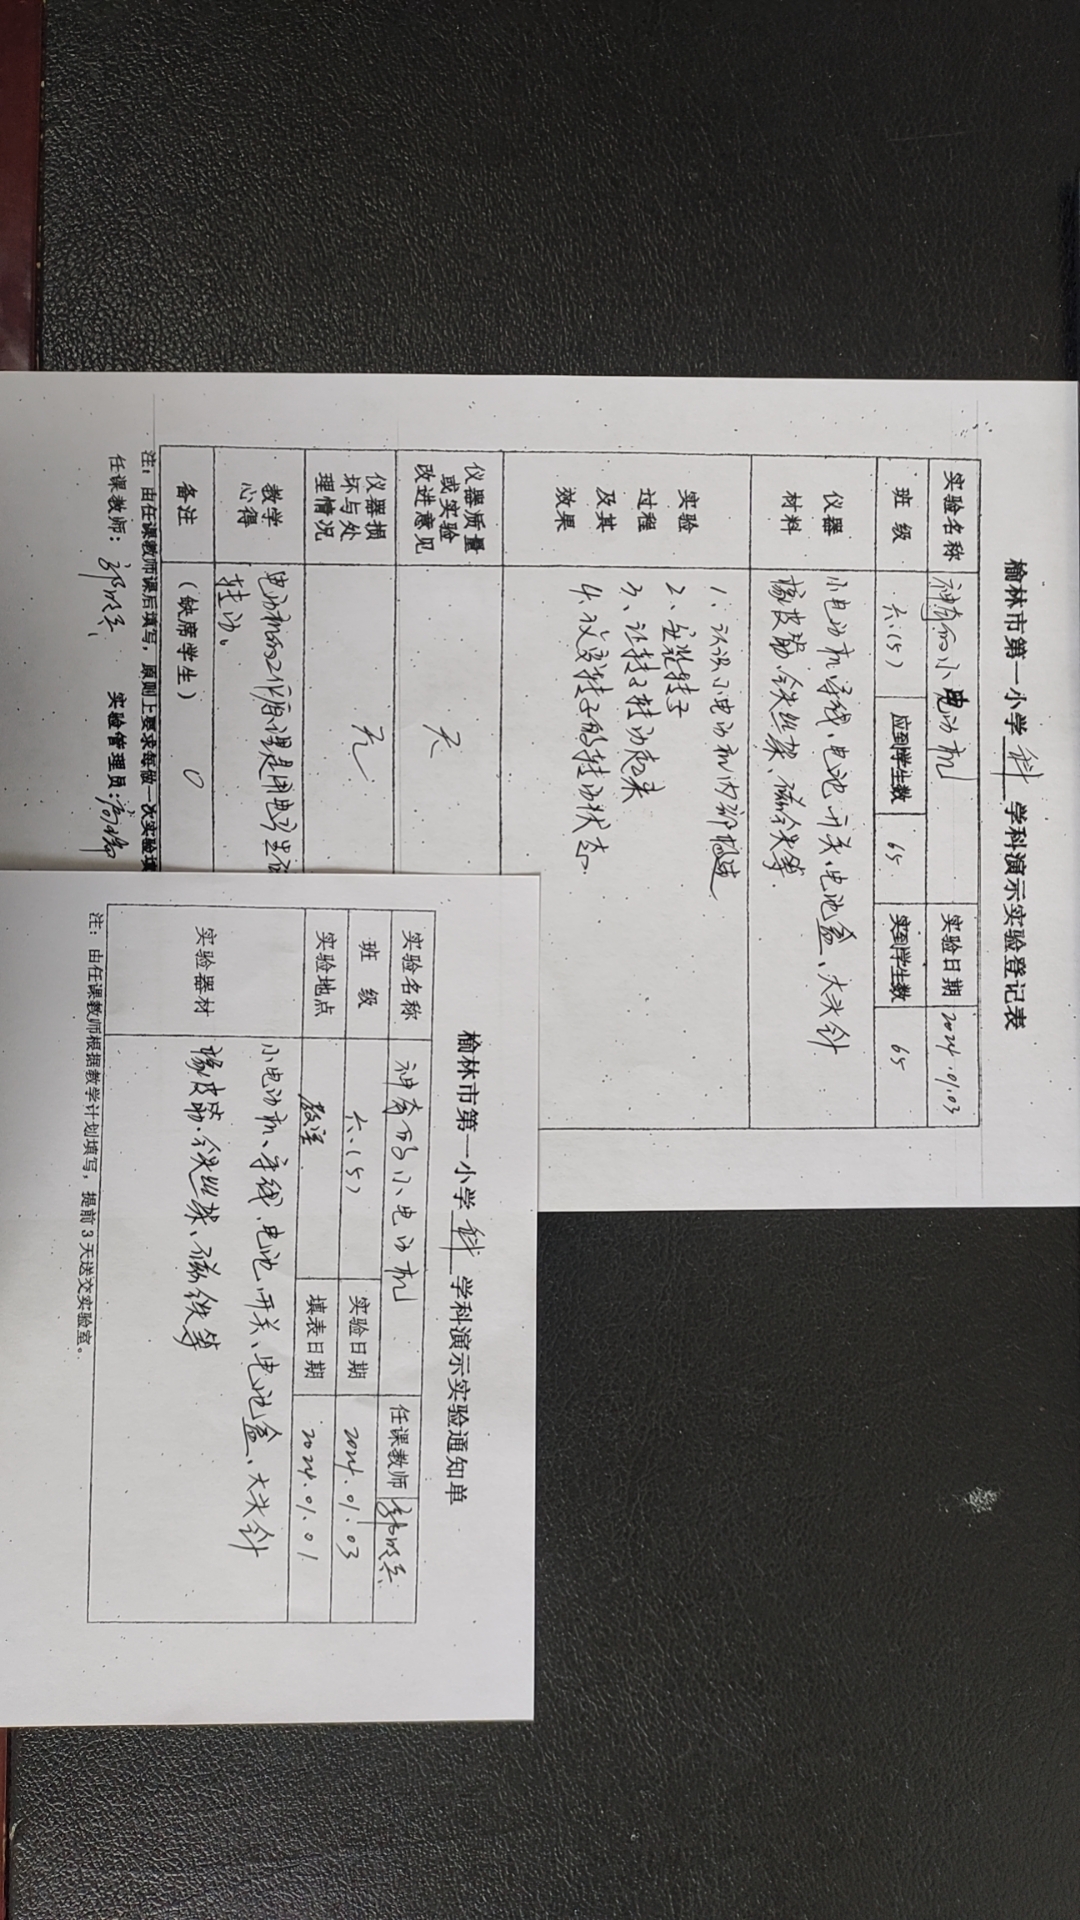 榆林市第一小学 科 学科演示实验登记表
实验名称 神奇的小电动机 实验日期 2024.01.03
班 级 六.(5) 应到学生数 65 实到学生数 65
仪器 小电动机、导线、电池、开关、电池盒、大头针
材料 橡皮筋、铁丝架、磁铁等.
实验
过程
及其
效果
1、认识小电动机内部构造
2、安装转子
3、让转子转动起来
4、改变转子的转动状态.
仪器质量
或实验
改进意见
无
仪器损
坏与处
理情况
无
教学
心得
电动机的工作原理是用电产生磁
转动。
备注 (缺席学生) 0
注：由任课教师课后填写，原则上要求每做一次实验填
任课教师： 实验管理员：
榆林市第一小学 科 学科演示实验通知单
实验名称 神奇的小电动机 任课教师
班 级 六.(5) 实验日期 2024.01.03
实验地点 教室 填表日期 2024.01.01
实验器材
小电动机、导线、电池、开关、电池盒、大头针
橡皮筋、铁丝架、磁铁等
注：由任课教师根据教学计划填写，提前3天送交实验室。